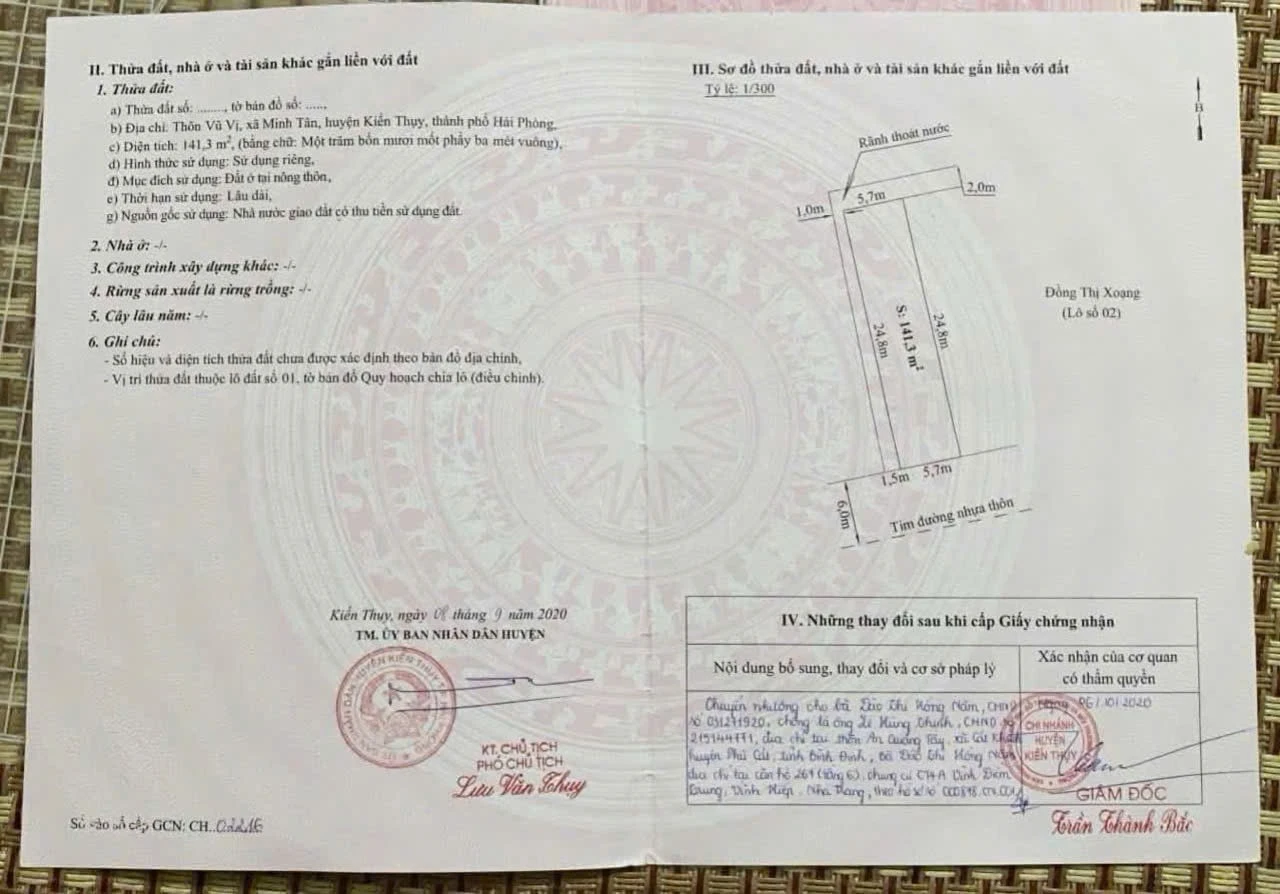 II. Thửa đất, nhà ở và tài sản khác gắn liền với đất
1. Thửa đất:
a) Thửa đất số: ........, tờ bản đồ số: .....,
b) Địa chỉ: Thôn Vũ Vị, xã Minh Tân, huyện Kiến Thụy, thành phố Hải Phòng,
c) Diện tích: 141,3 m², (bằng chữ: Một trăm bốn mươi mốt phẩy ba mét vuông),
d) Hình thức sử dụng: Sử dụng riêng,
đ) Mục đích sử dụng: Đất ở tại nông thôn,
e) Thời hạn sử dụng: Lâu dài,
g) Nguồn gốc sử dụng: Nhà nước giao đất có thu tiền sử dụng đất.
2. Nhà ở: -/-
3. Công trình xây dựng khác: -/-
4. Rừng sản xuất là rừng trồng: -/-
5. Cây lâu năm: -/-
6. Ghi chú:
- Số hiệu và diện tích thửa đất chưa được xác định theo bản đồ địa chính,
- Vị trí thửa đất thuộc lô đất số 01, tờ bản đồ Quy hoạch chia lô (điều chỉnh).
Kiến Thụy, ngày 08 tháng 9 năm 2020
TM. ỦY BAN NHÂN DÂN HUYỆN
KT. CHỦ TỊCH
PHÓ CHỦ TỊCH
Lưu Văn Thụy
Số vào sổ cấp GCN: CH..02216
III. Sơ đồ thửa đất, nhà ở và tài sản khác gắn liền với đất
Tỷ lệ: 1/300
B
Rãnh thoát nước
1,0m
5,7m
2,0m
24,8m
S: 141,3 m²
24,8m
Đồng Thị Xoạng
(Lô số 02)
1,5m
5,7m
6,0m
Tim đường nhựa thôn
IV. Những thay đổi sau khi cấp Giấy chứng nhận
Nội dung bổ sung, thay đổi và cơ sở pháp lý
Xác nhận của cơ quan
có thẩm quyền
Chuyển nhượng cho bà Đào Thị Hồng Năm, CMND
số 031271920, chồng là ông Lê Hùng Thịnh, CMND số
215144771, địa chỉ tại thôn An Quang Tây, xã Cát Khánh
huyện Phù Cát, tỉnh Bình Định, Bà Đào Thị Hồng Năm
địa chỉ tại căn hộ 261 (tầng 6), chung cư CT4A Vĩnh Điềm
Trung, Vĩnh Hiệp, Nha Trang, theo hồ sơ số
06/10/2020
CHI NHÁNH
HUYỆN
KIẾN THỤY
GIÁM ĐỐC
Trần Thành Bắc